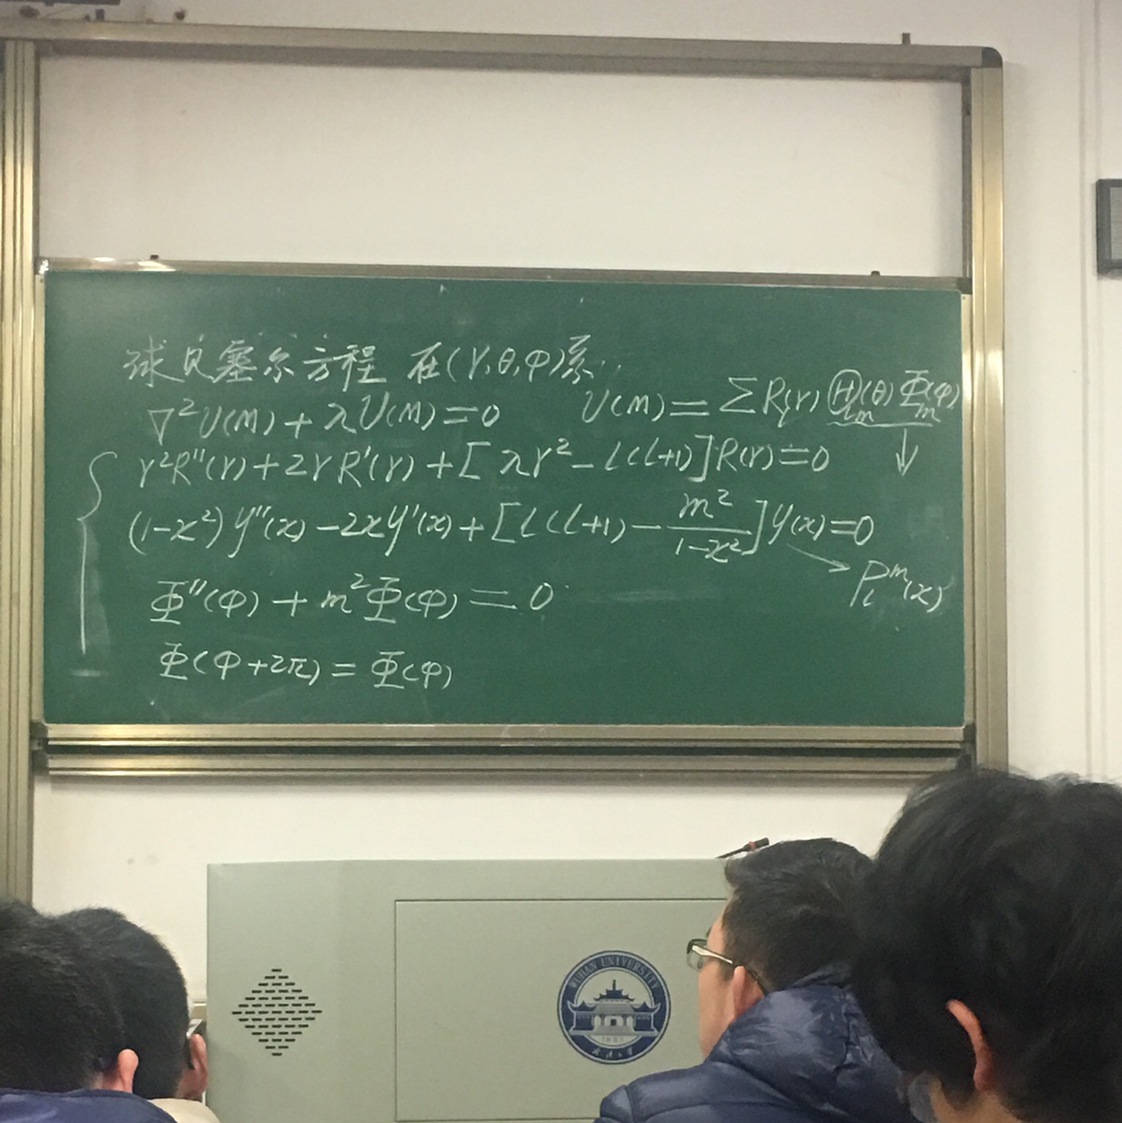 球贝塞尔方程 在(r,θ,φ)系:
∇²U(M)+λU(M)=0 U(M)=∑R_l(r)Ⓗ_lm(θ)Φ_m(φ)
r²R''(r)+2rR'(r)+[λr²-l(l+1)]R(r)=0
(1-x²)y''(x)-2xy'(x)+[l(l+1)-m²/(1-x²)]y(x)=0
P_l^m(x)
Φ''(φ)+m²Φ(φ)=0
Φ(φ+2π)=Φ(φ)
WUHAN UNIVERSITY
1893
武汉大学